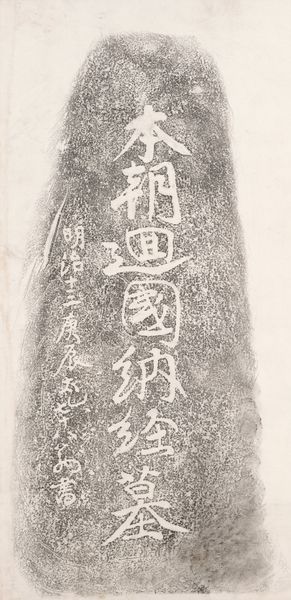 本朝廻國納経墓
明治十三庚辰
書